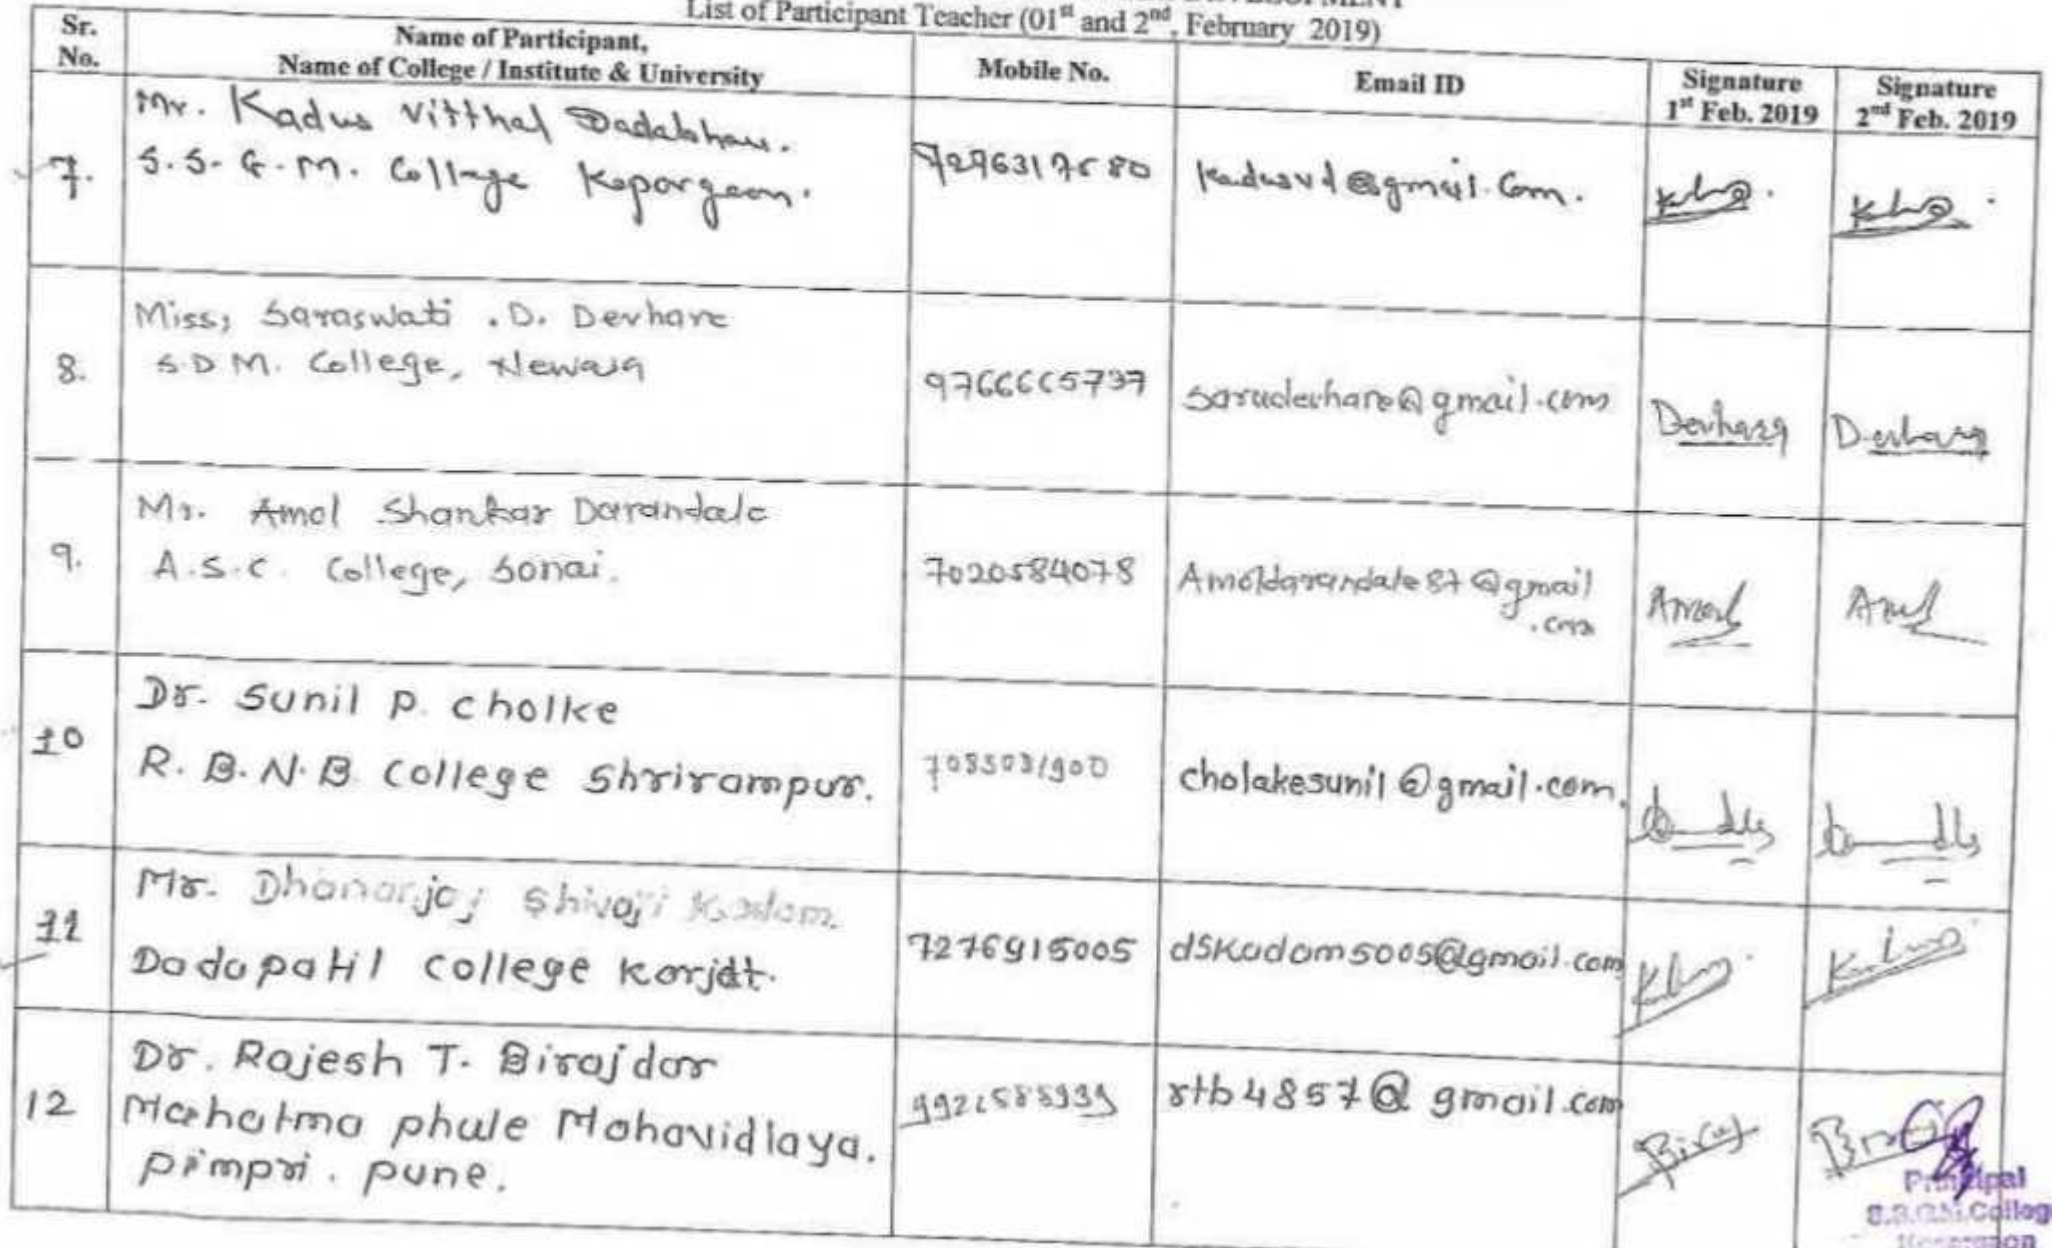 List of Participant Teacher (01st and 2nd, February 2019)
Sr. No.
Name of Participant,
Name of College / Institute & University
Mobile No.
Email ID
Signature
1st Feb. 2019
Signature
2nd Feb. 2019
7.
Mr. Kadus Vitthal Dadabhau.
S.S.G.M. College Kopargaon.
kadusvd@gmail.com.
8.
Miss, Saraswati .D. Devhare
S.D M. College, Newasa
9766665737
sarudevhare@gmail.com
Devhare
Devhare
9.
Mr. Amol Shankar Darandale
A.S.C. College, Sonai.
7020584078
Amoldarandale87@gmail
.com
Amol
Amol
10
Dr. Sunil P. Cholke
R.B.N.B College Shrirampur.
cholakesunil@gmail.com.
11
Mr. Dhananjay Shivaji Kadam.
Dadapatil college Karjat.
7276915005
dskadam5005@gmail.com
12
Dr. Rajesh T. Birajdar
Mahatma phule Mahavidlaya.
pimpri. pune.
rtb4857@gmail.com
Principal
S.S.G.M.College
Kopargaon